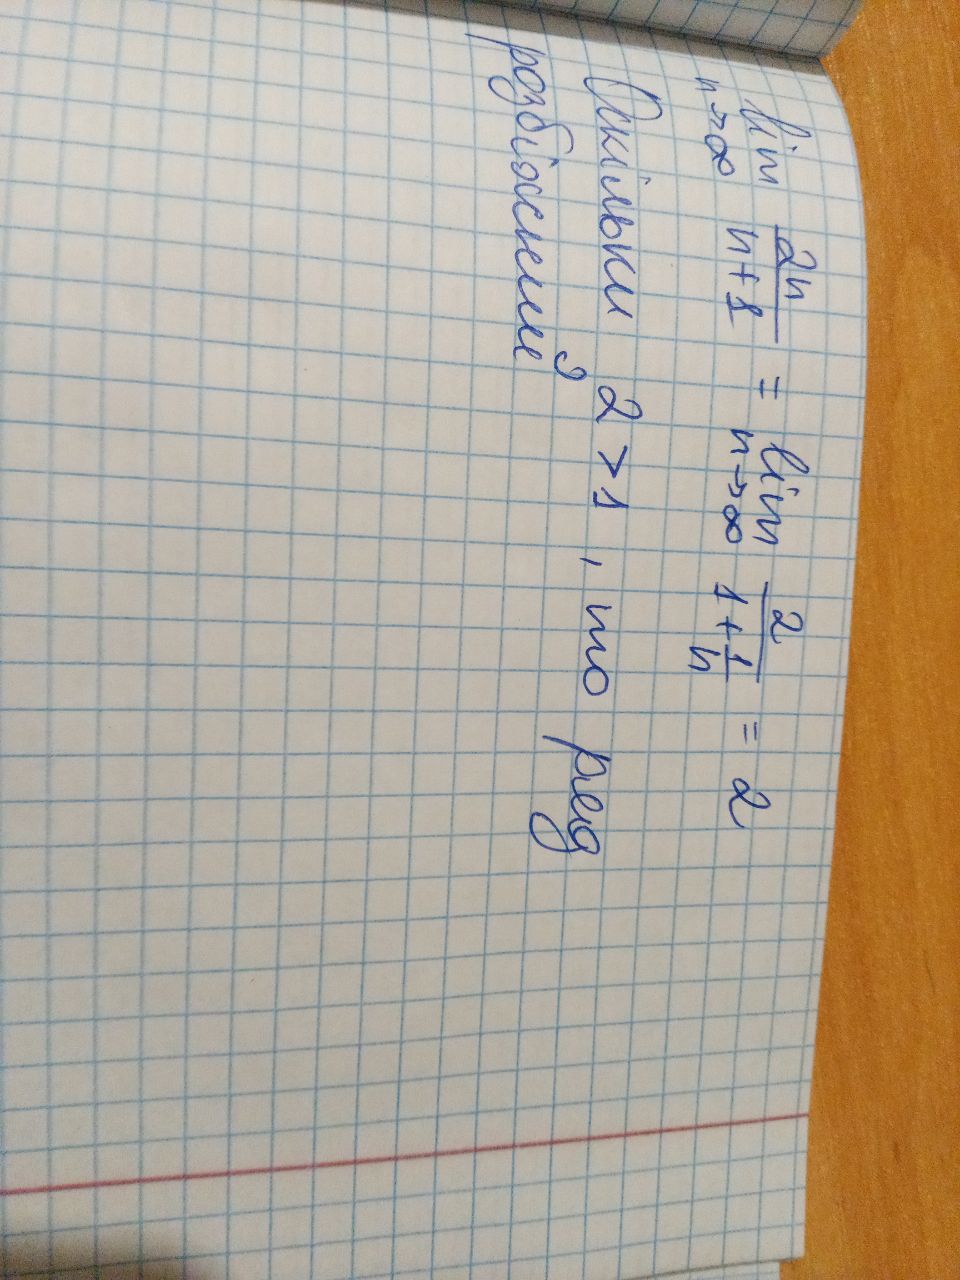 lim n→∞ 2n/(n+1) = lim n→∞ 2/(1+1/n) = 2
Оскільки 2 > 1, то ряд
розбіжний